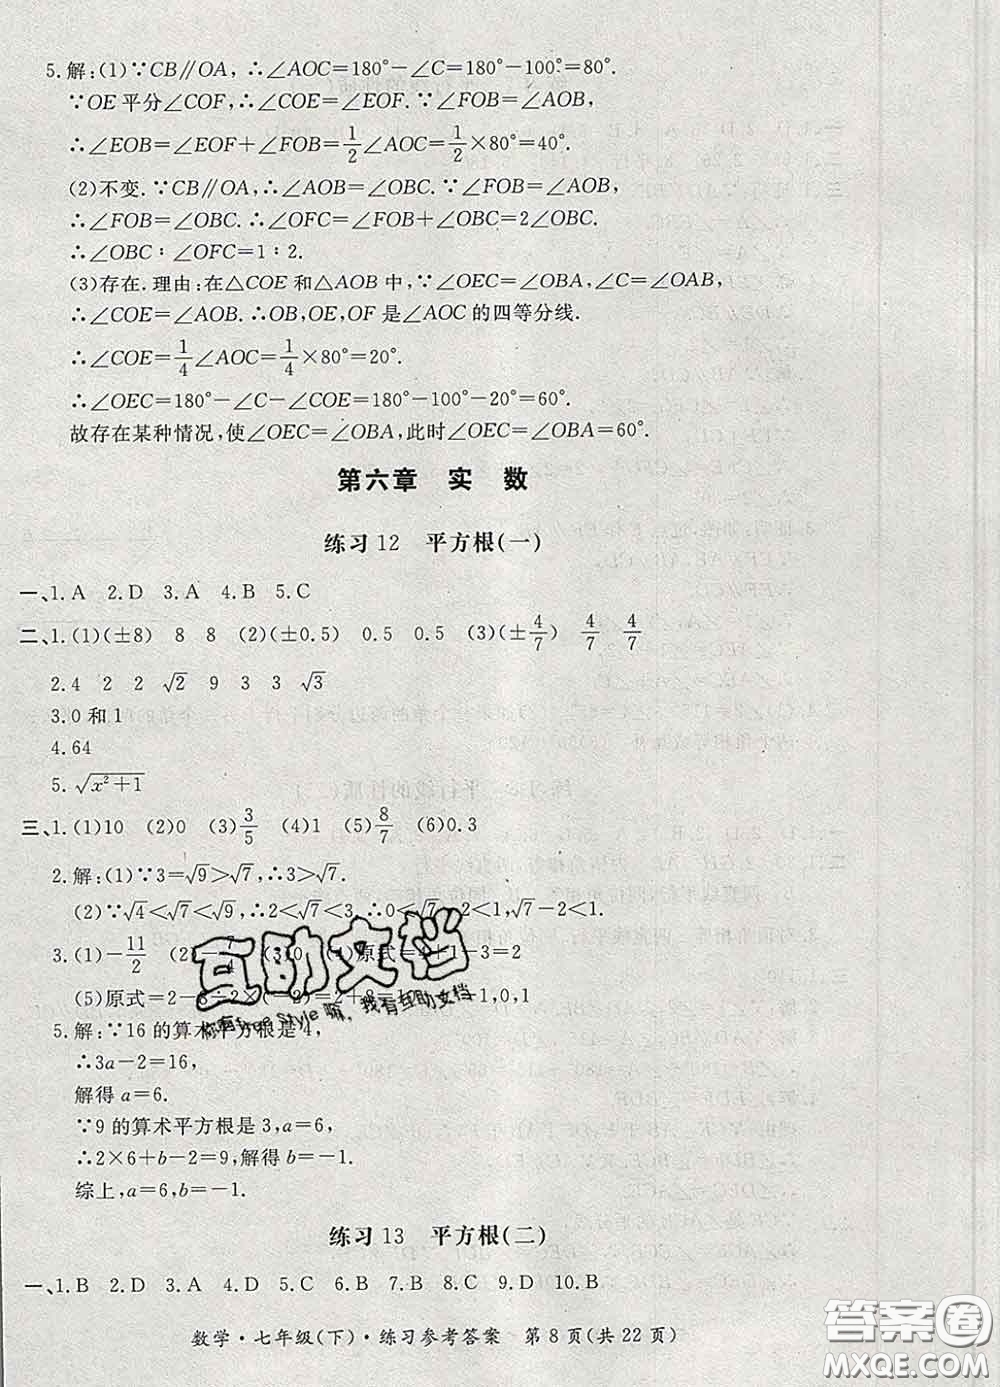 5.解:(1)∵CB∥OA,∴∠AOC=180°-∠C=180°-100°=80°.
∵OE平分∠COF,∴∠COE=∠EOF.∵∠FOB=∠AOB,
∴∠EOB=∠EOF+∠FOB=1/2∠AOC=1/2×80°=40°.
(2)不变.∵CB∥OA,∴∠AOB=∠OBC.∵∠FOB=∠AOB,
∴∠FOB=∠OBC.∴∠OFC=∠FOB+∠OBC=2∠OBC.
∴∠OBC∶∠OFC=1∶2.
(3)存在.理由:在△COE和△AOB中,∵∠OEC=∠OBA,∠C=∠OAB,
∴∠COE=∠AOB.∴OB,OE,OF是∠AOC的四等分线.
∴∠COE=1/4∠AOC=1/4×80°=20°.
∴∠OEC=180°-∠C-∠COE=180°-100°-20°=60°.
故存在某种情况,使∠OEC=∠OBA,此时∠OEC=∠OBA=60°.
第六章 实 数
练习12 平方根(一)
一、1.A 2.D 3.A 4.B 5.C
二、1.(1)(±8) 8 8 (2)(±0.5) 0.5 0.5 (3)(±4/7) 4/7 4/7
2.4 2 2 √2 9 3 3 √3
3.0和1
4.64
5.√(x²+1)
三、1.(1)10 (2)0 (3)3/5 (4)1 (5)8/7 (6)0.3
2.解:(1)∵3=√9>√7,∴3>√7.
(2)∵√4<√7<√9,∴2<√7<3,∴0<√7-2<1,√7-2<1.
3.(1)-11/2 (2) (3)0 (4)原式=4+1-3=2
(5)原式=2-8÷2×(-2)=2+8=1 -1,0,1
5.解:∵16的算术平方根是4,
∴3a-2=16,
解得a=6.
∵9的算术平方根是3,a=6,
∴2×6+b-2=9,解得b=-1.
综上,a=6,b=-1.
互助文档
你有free Style嘛,我有互助文档
练习13 平方根(二)
一、1.B 2.D 3.A 4.D 5.C 6.B 7.B 8.C 9.D 10.B
数学·七年级(下)·练习参考答案 第8页(共22页)
答案圈
MXQE.COM